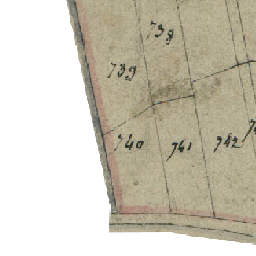 738
739
740 741 742